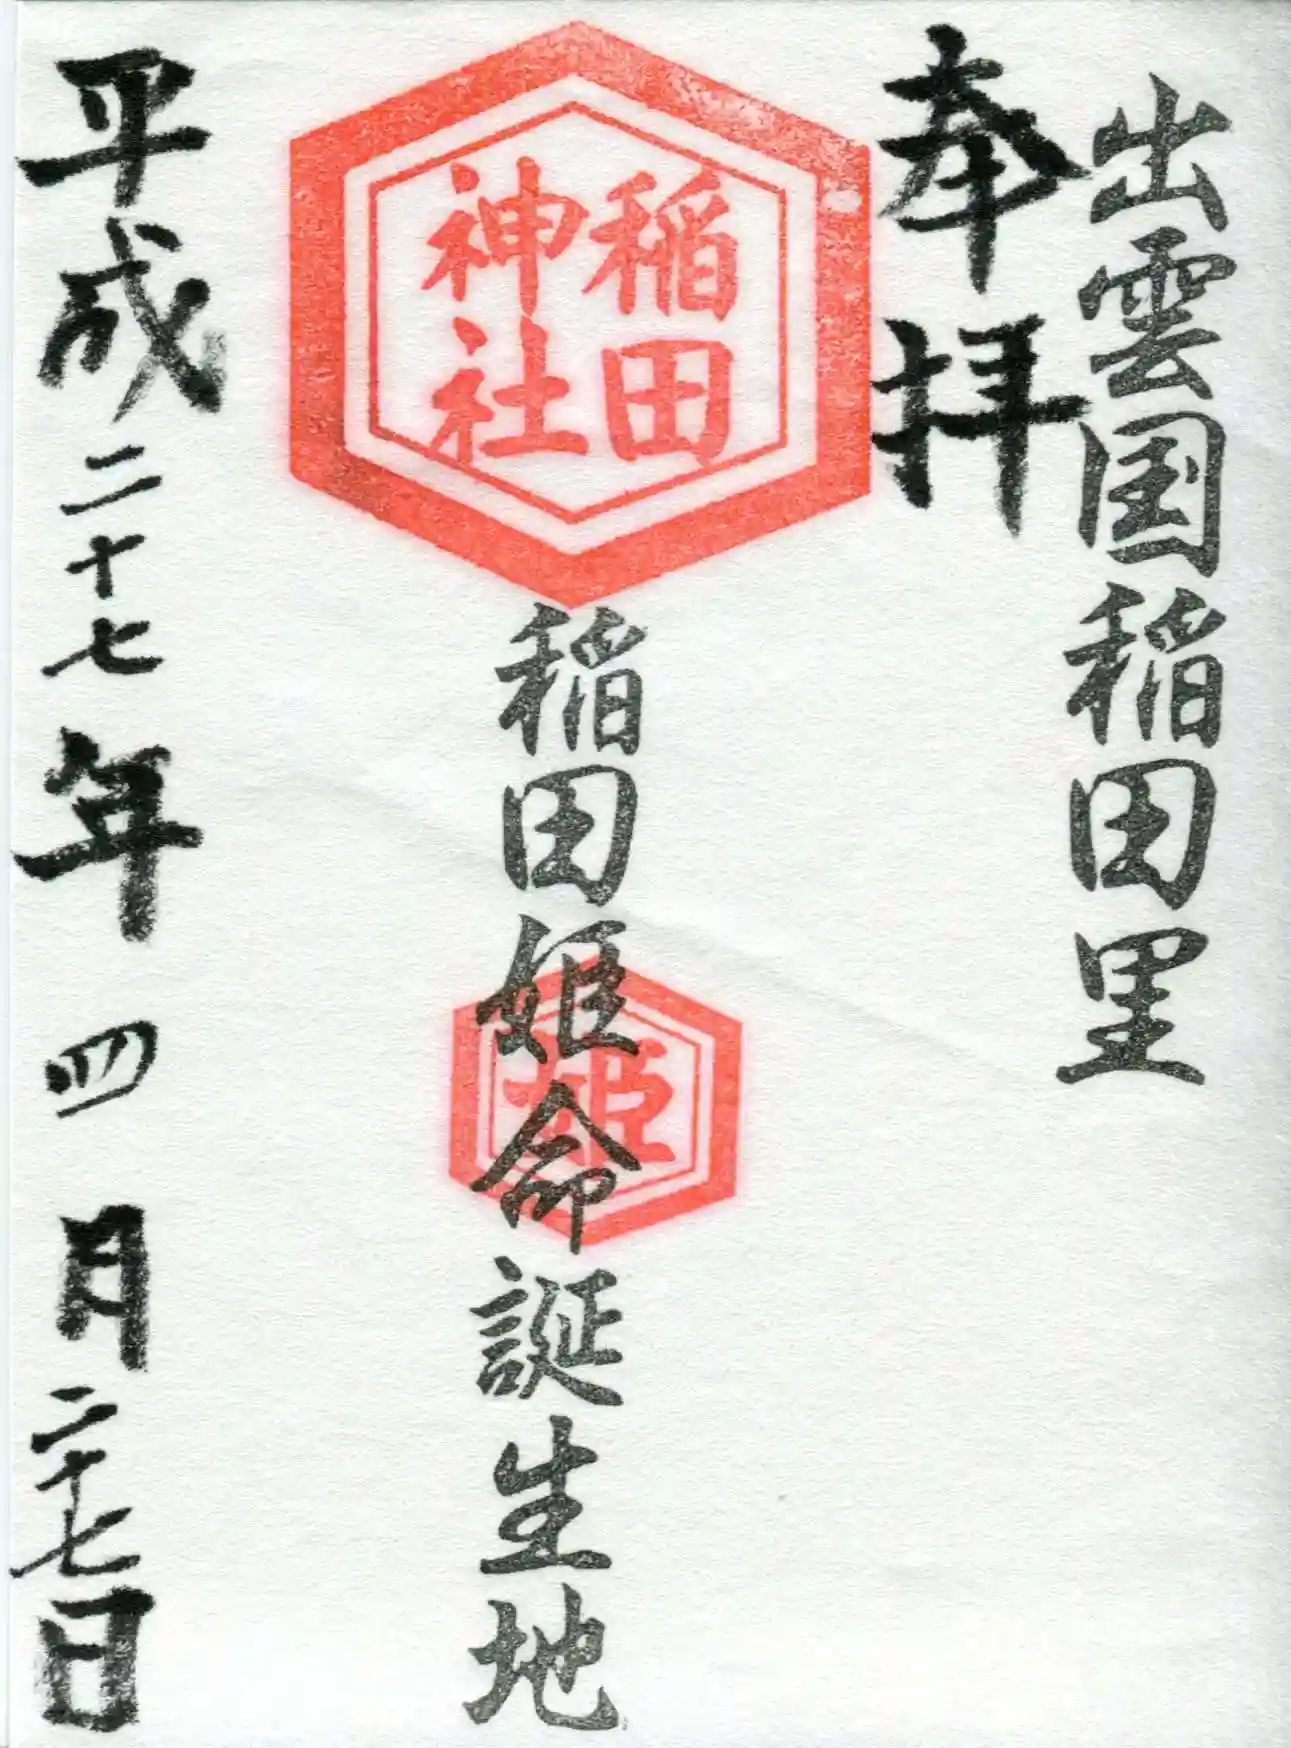 出雲国稲田里
奉拝
稲田
神社
稲田姫命誕生地
姫
平成二十七年四月二十七日